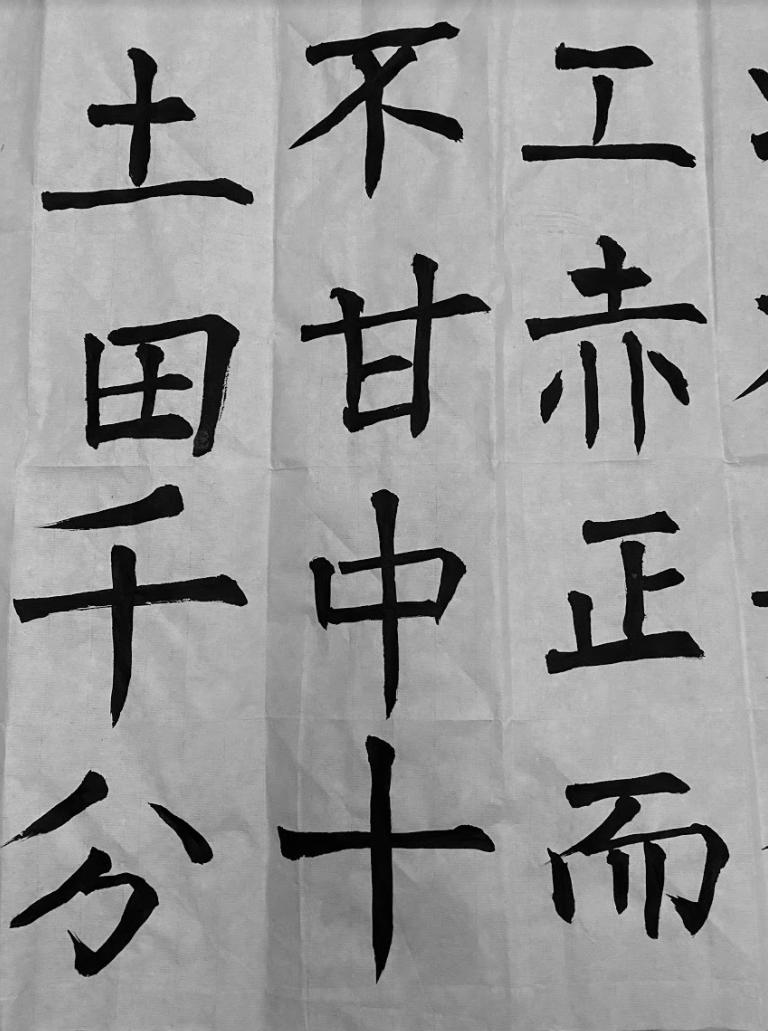 工赤正而
不甘中十
土田千分